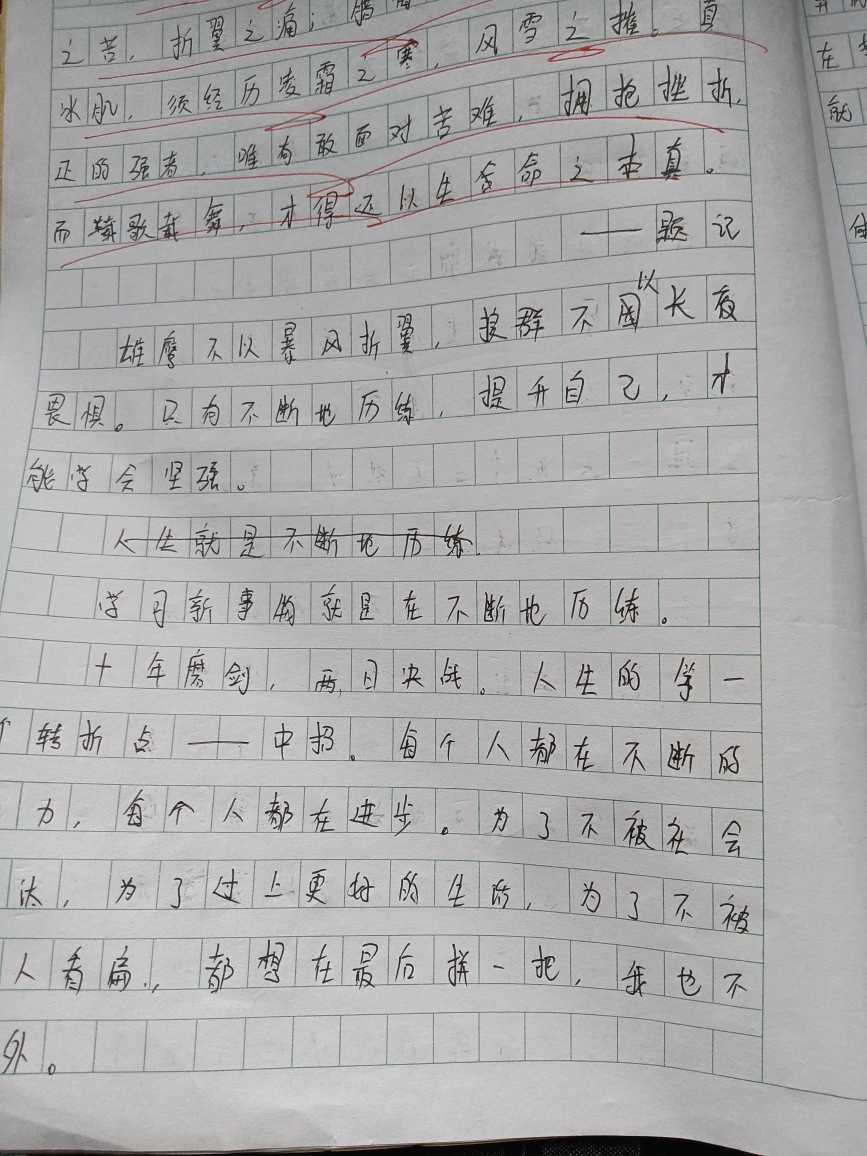 之苦，折翼之痛；腊
冰肌，须经历凌霜之寒，风雪之摧。真
正的强者，唯有敢面对苦难，拥抱挫折，
而载歌载舞，才得还以生命之本真。
——题记
雄鹰不以暴风折翼，狼群不因以长夜
畏惧。只有不断地历练，提升自己，才
能学会坚强。
人生就是不断地历练
学习新事物就是在不断地历练。
十年磨剑，两日决战。人生的学一
个转折点——中招。每个人都在不断的
力，每个人都在进步。为了不被社会
汰，为了过上更好的生活，为了不被
人看扁，都想在最后拼一把，我也不
外。
在
就